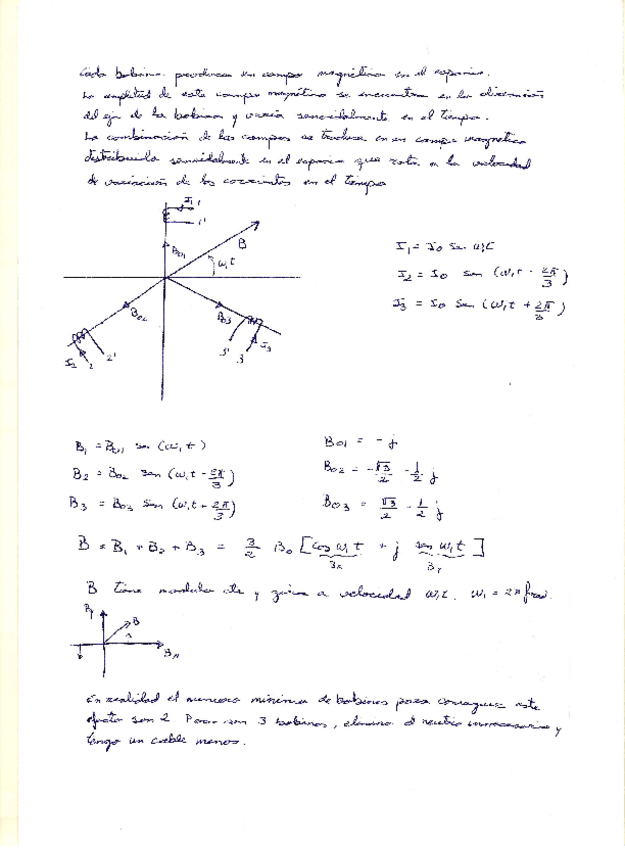 Cada bobina produce un campo magnético en el espacio.
La amplitud de este campo magnético se encuentra en la dirección
del eje de las bobinas y varía senoidalmente en el tiempo.
La combinación de los campos se traduce en un campo magnético
distribuido senoidalmente en el espacio que rota a la velocidad
de variación de las corrientes en el tiempo
I1 1
1'
B01
B
ω1t
B02
B03
I2 2 2'
3' 3 I3
I1 = I0 sen ω1t
I2 = I0 sen (ω1t - 2π/3)
I3 = I0 sen (ω1t + 2π/3)
B1 = B01 sen (ω1t)
B01 = - j
B2 = B02 sen (ω1t - 2π/3)
B02 = -√3/2 - 1/2 j
B3 = B03 sen (ω1t + 2π/3)
B03 = √3/2 - 1/2 j
B = B1 + B2 + B3 = 3/2 B0 [cos ω1t + j sen ω1t]
Bx By
B tiene modulo cte y gira a velocidad ω1t. ω1 = 2π
By
B
Bx
En realidad el numero minimo de bobinas para conseguir este
efecto son 2. Pero con 3 bobinas, elimino el neutro y
tengo un cable menos.